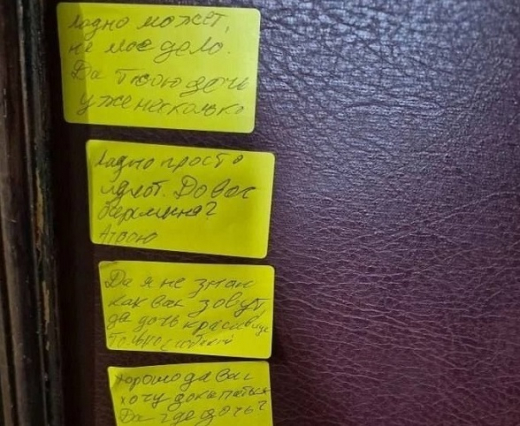 Ладно может,
не мое дело.
Да твою дочь
уже несколько
Ладно просто
идиот. До вас
беременна?
Атвою
Да я не знаю
как вас зовут,
да дочь красавица
только
Хорошо да вас
хочу докапаться
Да где дочь?